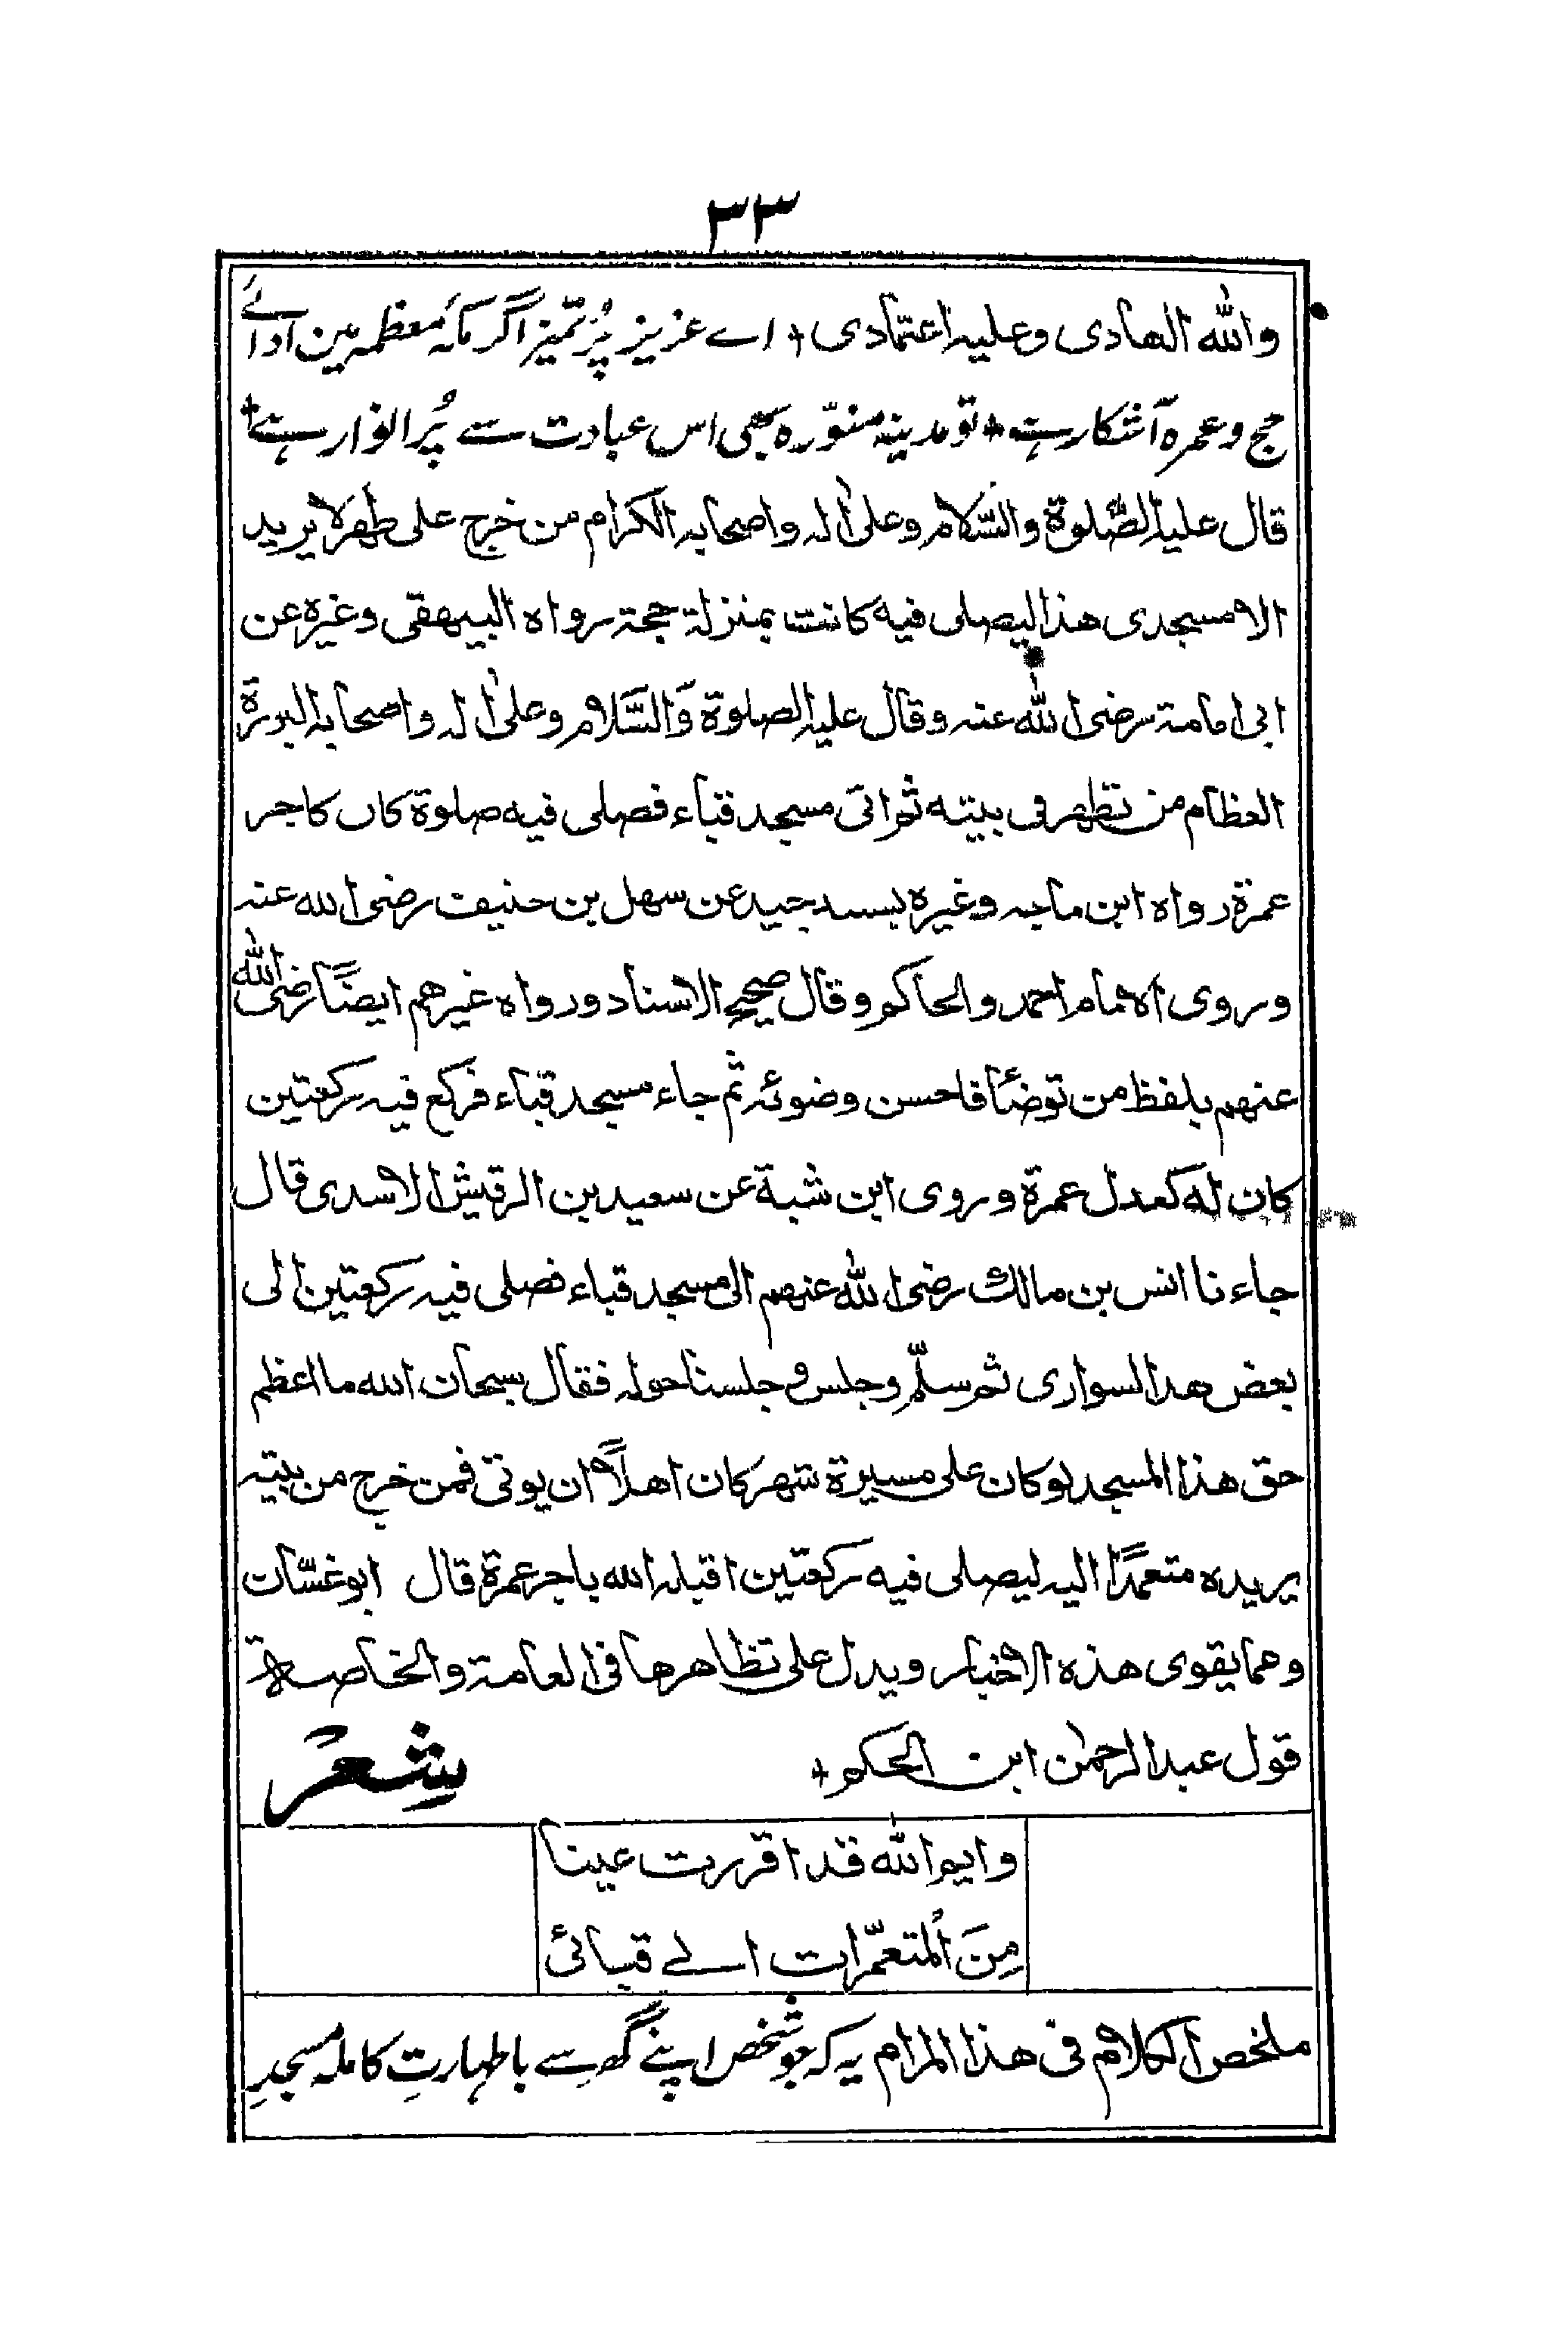 ۳۳
والله الهادی وعلیه اعتمادی + اے عزیز پُر تمیز اگر مکہ معظمہ مین اداۓ
حج و عمرہ آشکار ہے + تو مدینہ منوّرہ بھی اس عبادت سے پُر انوار ہے +
قال علیہ الصَّلوۃ والسَّلام وعلیٰ الہ واصحابہ الکرام من خرج علی طھر لا یرید
الا مسجدی ھذا لیصلی فیه کانت بمنزلۃ حجۃ رواہ البیھقی وغیرہ عن
ابی امامۃ رضی اللہ عنہ وقال علیہ الصلوۃ وَالسَّلام وعلیٰ الہ واصحابہ البررۃ
العظام من تطھر فی بیتہ ثم اتی مسجد قباء فصلی فیہ صلوۃ کان کاجر
عمرۃ رواہ ابن ماجہ وغیرہ بسند جید عن سھل بن حنیف رضی اللہ عنہ
وروی الامام احمد والحاکم وقال صحیح الاسناد ورواہ غیرھم ایضًا رضی اللہ
عنھم بلفظ من توضأ فاحسن وضوئہ ثم جاء مسجد قباء فرکع فیہ رکعتین
کان لہ کعدل عمرۃ وروی ابن شبۃ عن سعید بن الرقیش الاسدی قال
جاءنا انس بن مالک رضی اللہ عنھم الی مسجد قباء فصلی فیہ رکعتین الی
بعض ھذا السواری ثم سلّم وجلس و جلسنا حولہ فقال سبحان اللہ ما اعظم
حق ھذا المسجد لو کان علی مسیرۃ شھر کان اھلًا ان یوتی فمن خرج من بیتہ
یریدہ متعمدًا الیہ لیصلی فیہ رکعتین اقبلہ اللہ باجر عمرۃ قال ابوغسّان
ومما یقوی ھذہ الاخبار ویدل علی تظاھرھا فی العامۃ والخاصۃ
قول عبد الرحمٰن ابن الحکم + شِعرٌ
وایم اللہ قد اقررت عینا
مِنَ اْلمتعمّرات الے قبائ
ملخص الکلام فی ھذا المرام یہ کہ جو شخص اپنے گھر سے باطہارتِ کاملہ مسجدِ